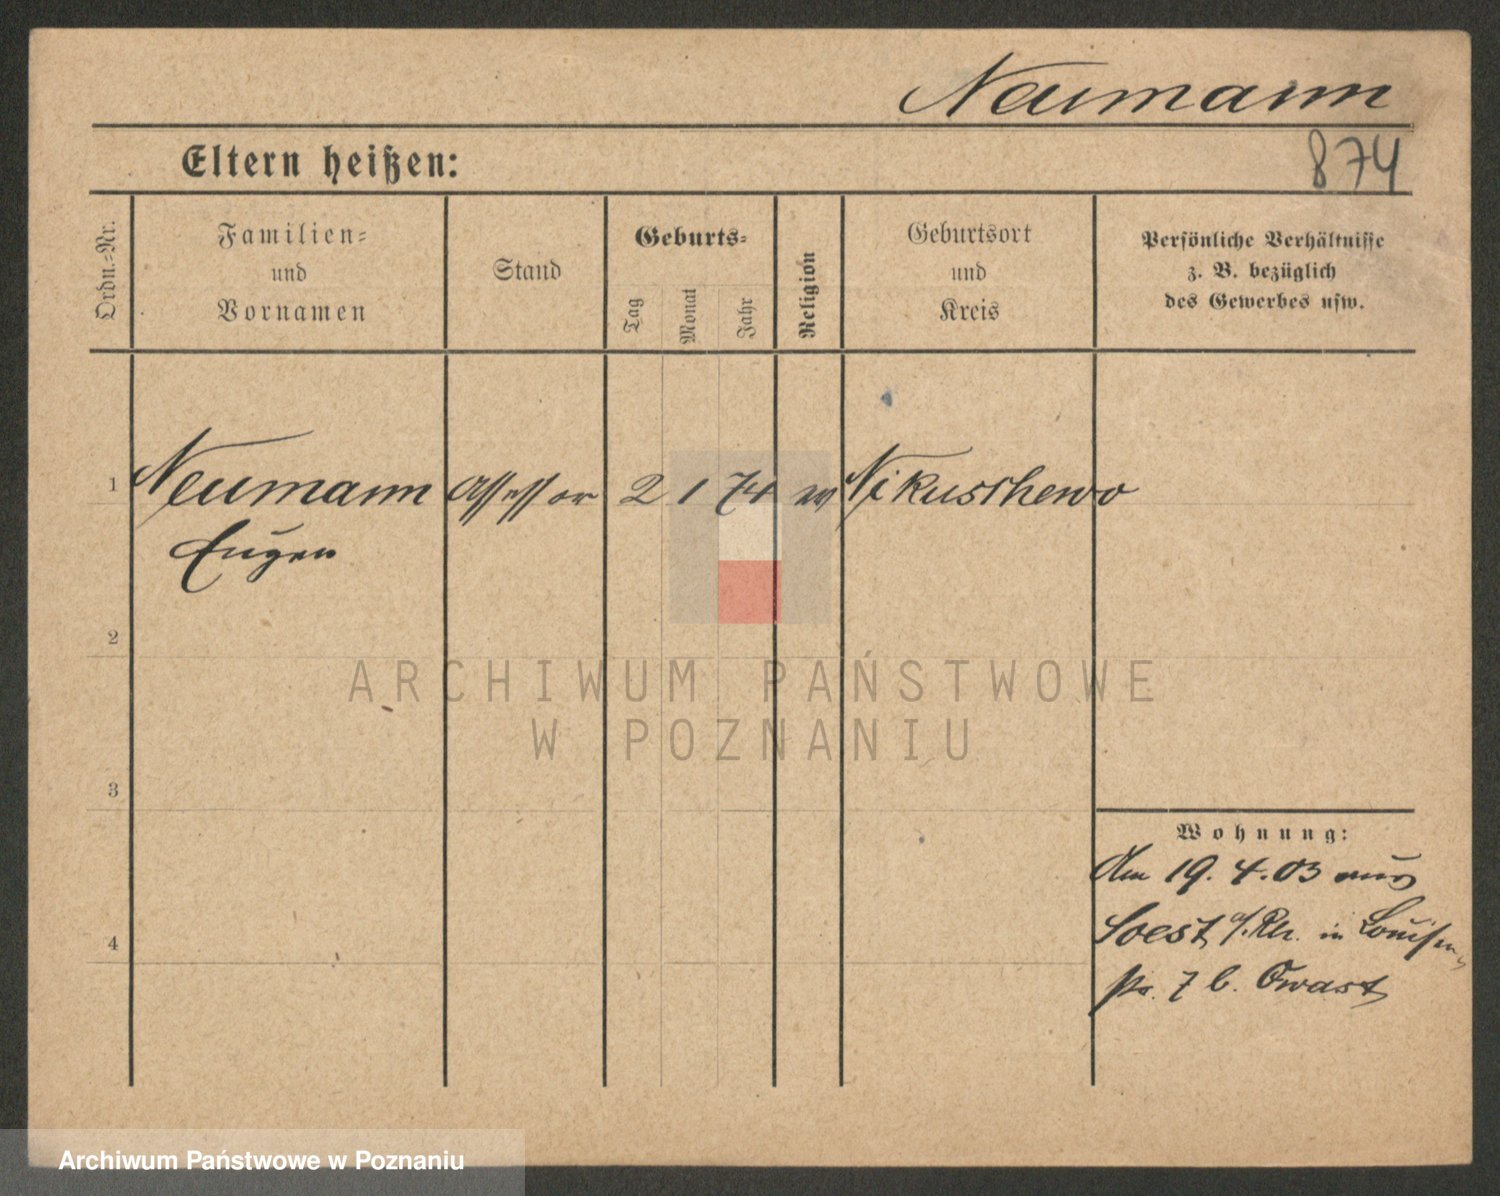 Neumann
874
Eltern heißen:
Ordn.=Nr.
Familien=
und
Vornamen
Stand
Geburts=
Tag
Monat
Jahr
Religion
Geburtsort
und
Kreis
Persönliche Verhältnisse
z. B. bezüglich
des Gewerbes usw.
1 Neumann Assessor 2 1 74 Nikuschewo
Eugen
2
3
4
ARCHIWUM PAŃSTWOWE
W POZNANIU
Wohnung:
Am 19. 4. 03 aus
Soest a/Rh. in Louisen
str. 7 b. Owast
Archiwum Państwowe w Poznaniu